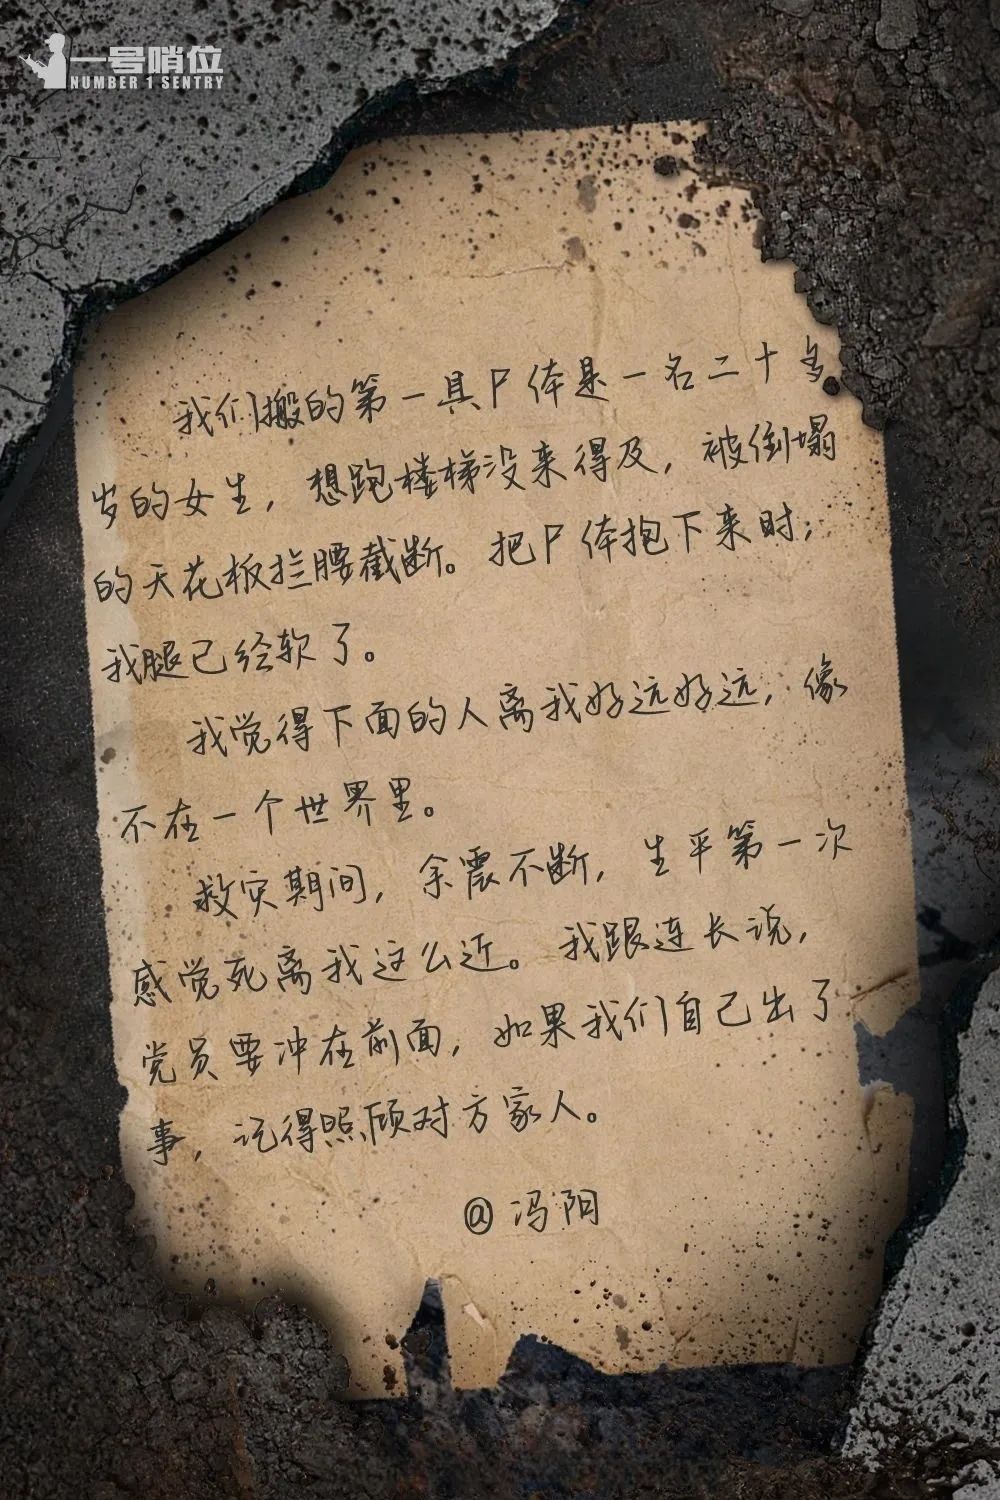 一号哨位
NUMBER 1 SENTRY
我们搬的第一具尸体是一名二十多
岁的女生，想跑楼梯没来得及，被倒塌
的天花板拦腰截断。把尸体抱下来时，
我腿已经软了。
我觉得下面的人离我好远好远，像
不在一个世界里。
救灾期间，余震不断，生平第一次
感觉死离我这么近。我跟连长说，
党员要冲在前面，如果我们自己出了
事，记得照顾对方家人。
@冯阳